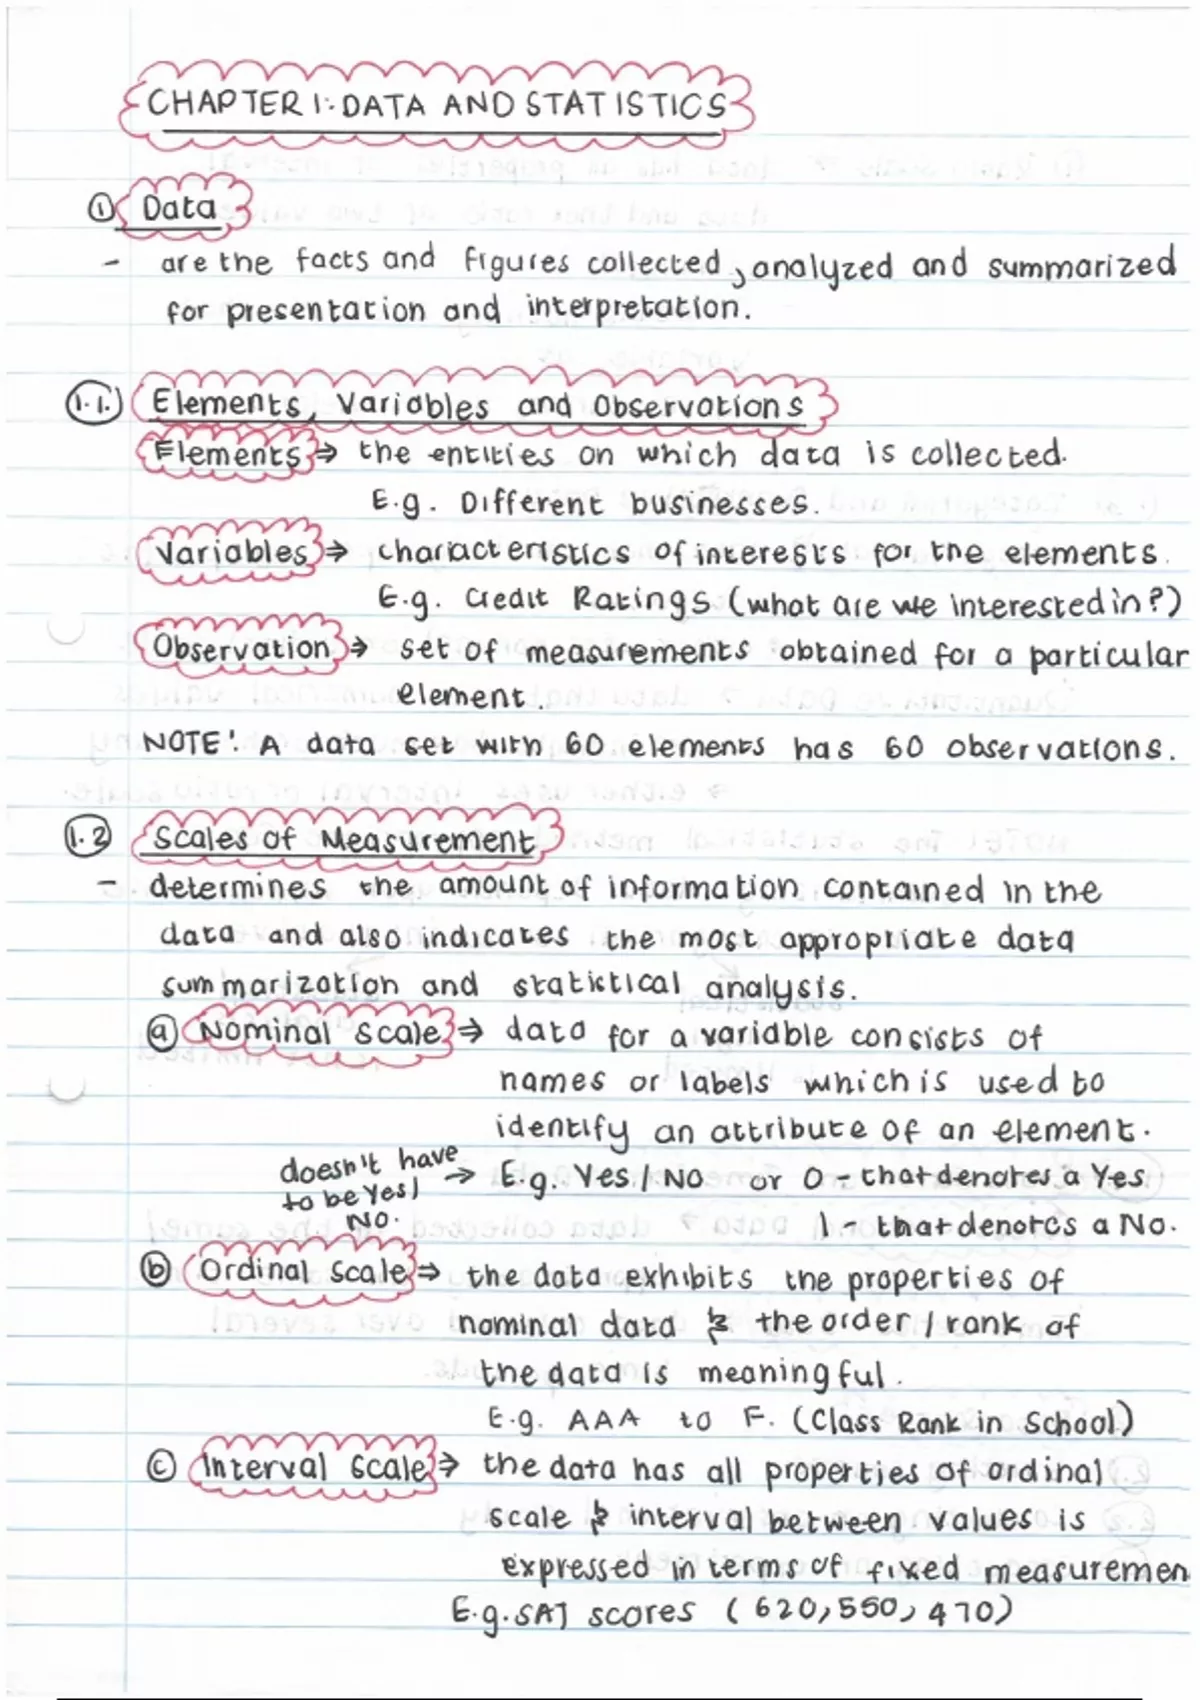 CHAPTER 1: DATA AND STATISTICS
① Data
- are the facts and figures collected, analyzed and summarized
for presentation and interpretation.
1.1. Elements, Variables and Observations
Elements ⇒ the entities on which data is collected.
E.g. Different businesses.
Variables ⇒ characteristics of interests for the elements.
E.g. Credit Ratings (what are we interested in?)
Observation ⇒ set of measurements obtained for a particular
element.
NOTE: A data set with 60 elements has 60 observations.
1.2 Scales of Measurement
- determines the amount of information contained in the
data and also indicates the most appropriate data
summarization and statistical analysis.
ⓐ Nominal Scale ⇒ data for a variable consists of
names or labels which is used to
identify an attribute of an element.
doesn't have
to be Yes/
No.
→ E.g. Yes/No or 0 - that denotes a Yes
1 - that denotes a No.
ⓑ Ordinal Scale ⇒ the data exhibits the properties of
nominal data & the order/rank of
the data is meaningful.
E.g. AAA to F. (Class Rank in School)
ⓒ Interval Scale ⇒ the data has all properties of ordinal
scale & interval between values is
expressed in terms of fixed measuremen
E.g. SAT scores (620, 550, 470)